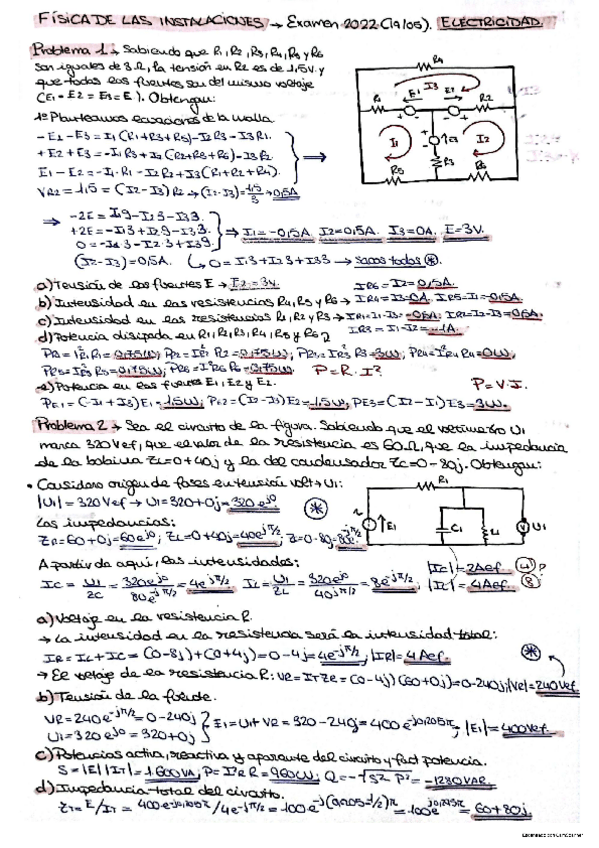 FÍSICA DE LAS INSTALACIONES → Examen 2022 (19/05). ELECTRICIDAD.
Problema 1 → Sabiendo que R1, R2, R3, R4, R5 y R6
son iguales de 3Ω, la tensión en R2 es de 1,5V y
que todas las fuentes son del mismo voltaje
(E1 = E2 = E3 = E). Obtengan:
1º Planteamos ecuaciones de la malla.
-E1-E3 = I1(R1+R3+R5)-I2R3-I3R1.
+E2+E3 = -I1R3+I2(R2+R3+R6)-I3R2.
E1-E2 = -I1·R1-I2R2+I3(R1+R2+R4).
VR2 = 1,5 = (I2-I3)R2 → (I2-I3) = 1,5/3 → 0,5A
R4
R1
E1
I3
E2
R2
I1
E3
I2
R3
R5
R6
⇒ -2E = I19-I23-I33.
+2E = -I13+I29-I33.
0 = -I13-I23+I39.
(I2-I3) = 0,5A.
⇒ I1 = -0,5A. I2 = 0,5A. I3 = 0A. E = 3V.
0 = I13+I23+I33 → sacas todas (*).
a) Tensión de las fuentes E → E = 3V.
IR6 = I2 = 0,5A.
b) Intensidad en las resistencias R4, R5 y R6 → IR4 = I3 = 0A. IR5 = I1 = -0,5A.
c) Intensidad en las resistencias R1, R2 y R3 → IR1 = I1-I3 = -0,5A; IR2 = I2-I3 = 0,5A.
IR3 = I1-I2 = -1A.
d) Potencia disipada en R1, R2, R3, R4, R5 y R6
PR1 = I²R1 R1 = 0,75W; PR2 = I²R2 R2 = 0,75W; PR3 = I²R3 R3 = 3W; PR4 = I²R4 R4 = 0W,
PR5 = I²R5 R5 = 0,75W; PR6 = I²R6 R6 = 0,75W. P = R·I²
e) Potencia en las fuentes E1, E2 y E2.
P = V·I.
PE1 = (-I1+I3)E1 = 1,5W; PE2 = (I2-I3)E2 = 1,5W; PE3 = (I2-I1)E3 = 3W.
Problema 2 → Sea el circuito de la figura. Sabiendo que el voltímetro U1
marca 320Vef, que el valor de la resistencia es 60Ω, que la impedancia
de la bobina ZL = 0+40j y la del condensador ZC = 0-80j. Obtengan:
• Considero origen de fases en tensión volt → U1:
|U1| = 320Vef → U1 = 320+0j = 320e^j0
Las impedancias:
ZR = 60+0j = 60e^j0; ZL = 0+40j = 40e^jπ/2; Z = 0-80j = 80e
R1
E1
C1
L1
U1
A partir de aquí, las intensidades:
IC = U1/ZC = 320e^j0/80e^-jπ/2 = 4e^jπ/2 IL = U1/ZL = 320e^j0/40e^jπ/2 = 8e^-jπ/2
|IC| = 2Aef. (4)
|IL| = 4Aef. (8)
a) Voltaje en la resistencia R.
→ La intensidad en la resistencia será la intensidad total:
IR = IL+IC = (0-8j)+(0+4j) = 0-4j = 4e^-jπ/2; |IR| = 4Aef.
→ El voltaje de la resistencia R: VR = IT ZR = (0-4j)(60+0j) = 0-240j; |VR| = 240Vef.
b) Tensión de la fuente.
VR = 240e^-jπ/2 = 0-240j
U1 = 320e^j0 = 320+0j
E1 = U1+VR = 320-240j = 400e^-j0,205π; |E1| = 400Vef.
c) Potencias activa, reactiva y aparente del circuito y fact potencia.
S = |E||IT| = 1600VA; P = I²R R = 960W; Q = -√S²-P² = -1280VAR.
d) Impedancia total del circuito.
ZT = E/IT = 400e^-j0,205π/4e^-jπ/2 = 100e^-j(0,205-1/2)π = 100e^j0,295π = 60+80j.